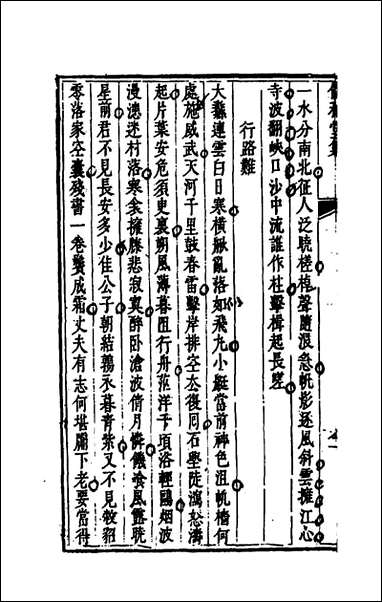 一水分南北征人泛曉槎棹聲隨浪急帆影逐風斜雲擁江心
寺波翻峽口沙中流誰作柱擊楫起長嗟
行路難
大麓連雲白日寒橫楸亂落如飛丸小艇當前神色沮帆檣何
處施威武天河千里鼓春雷擊岸排空去復回石壁陡瀉怒濤
起片葉安危須臾裏朝風薄暮阻行舟茫洋千頃浴輕鷗烟波
漫漶迷村落寒衾擁膝悲寂寞醉卧滄波倩月憐饑食風露曉
星前君不見長安多少佳公子朝結鶉衣暮青紫又不見敝貂
零落家空囊殘書一卷鬢成霜丈夫有志何堪關下老要當得